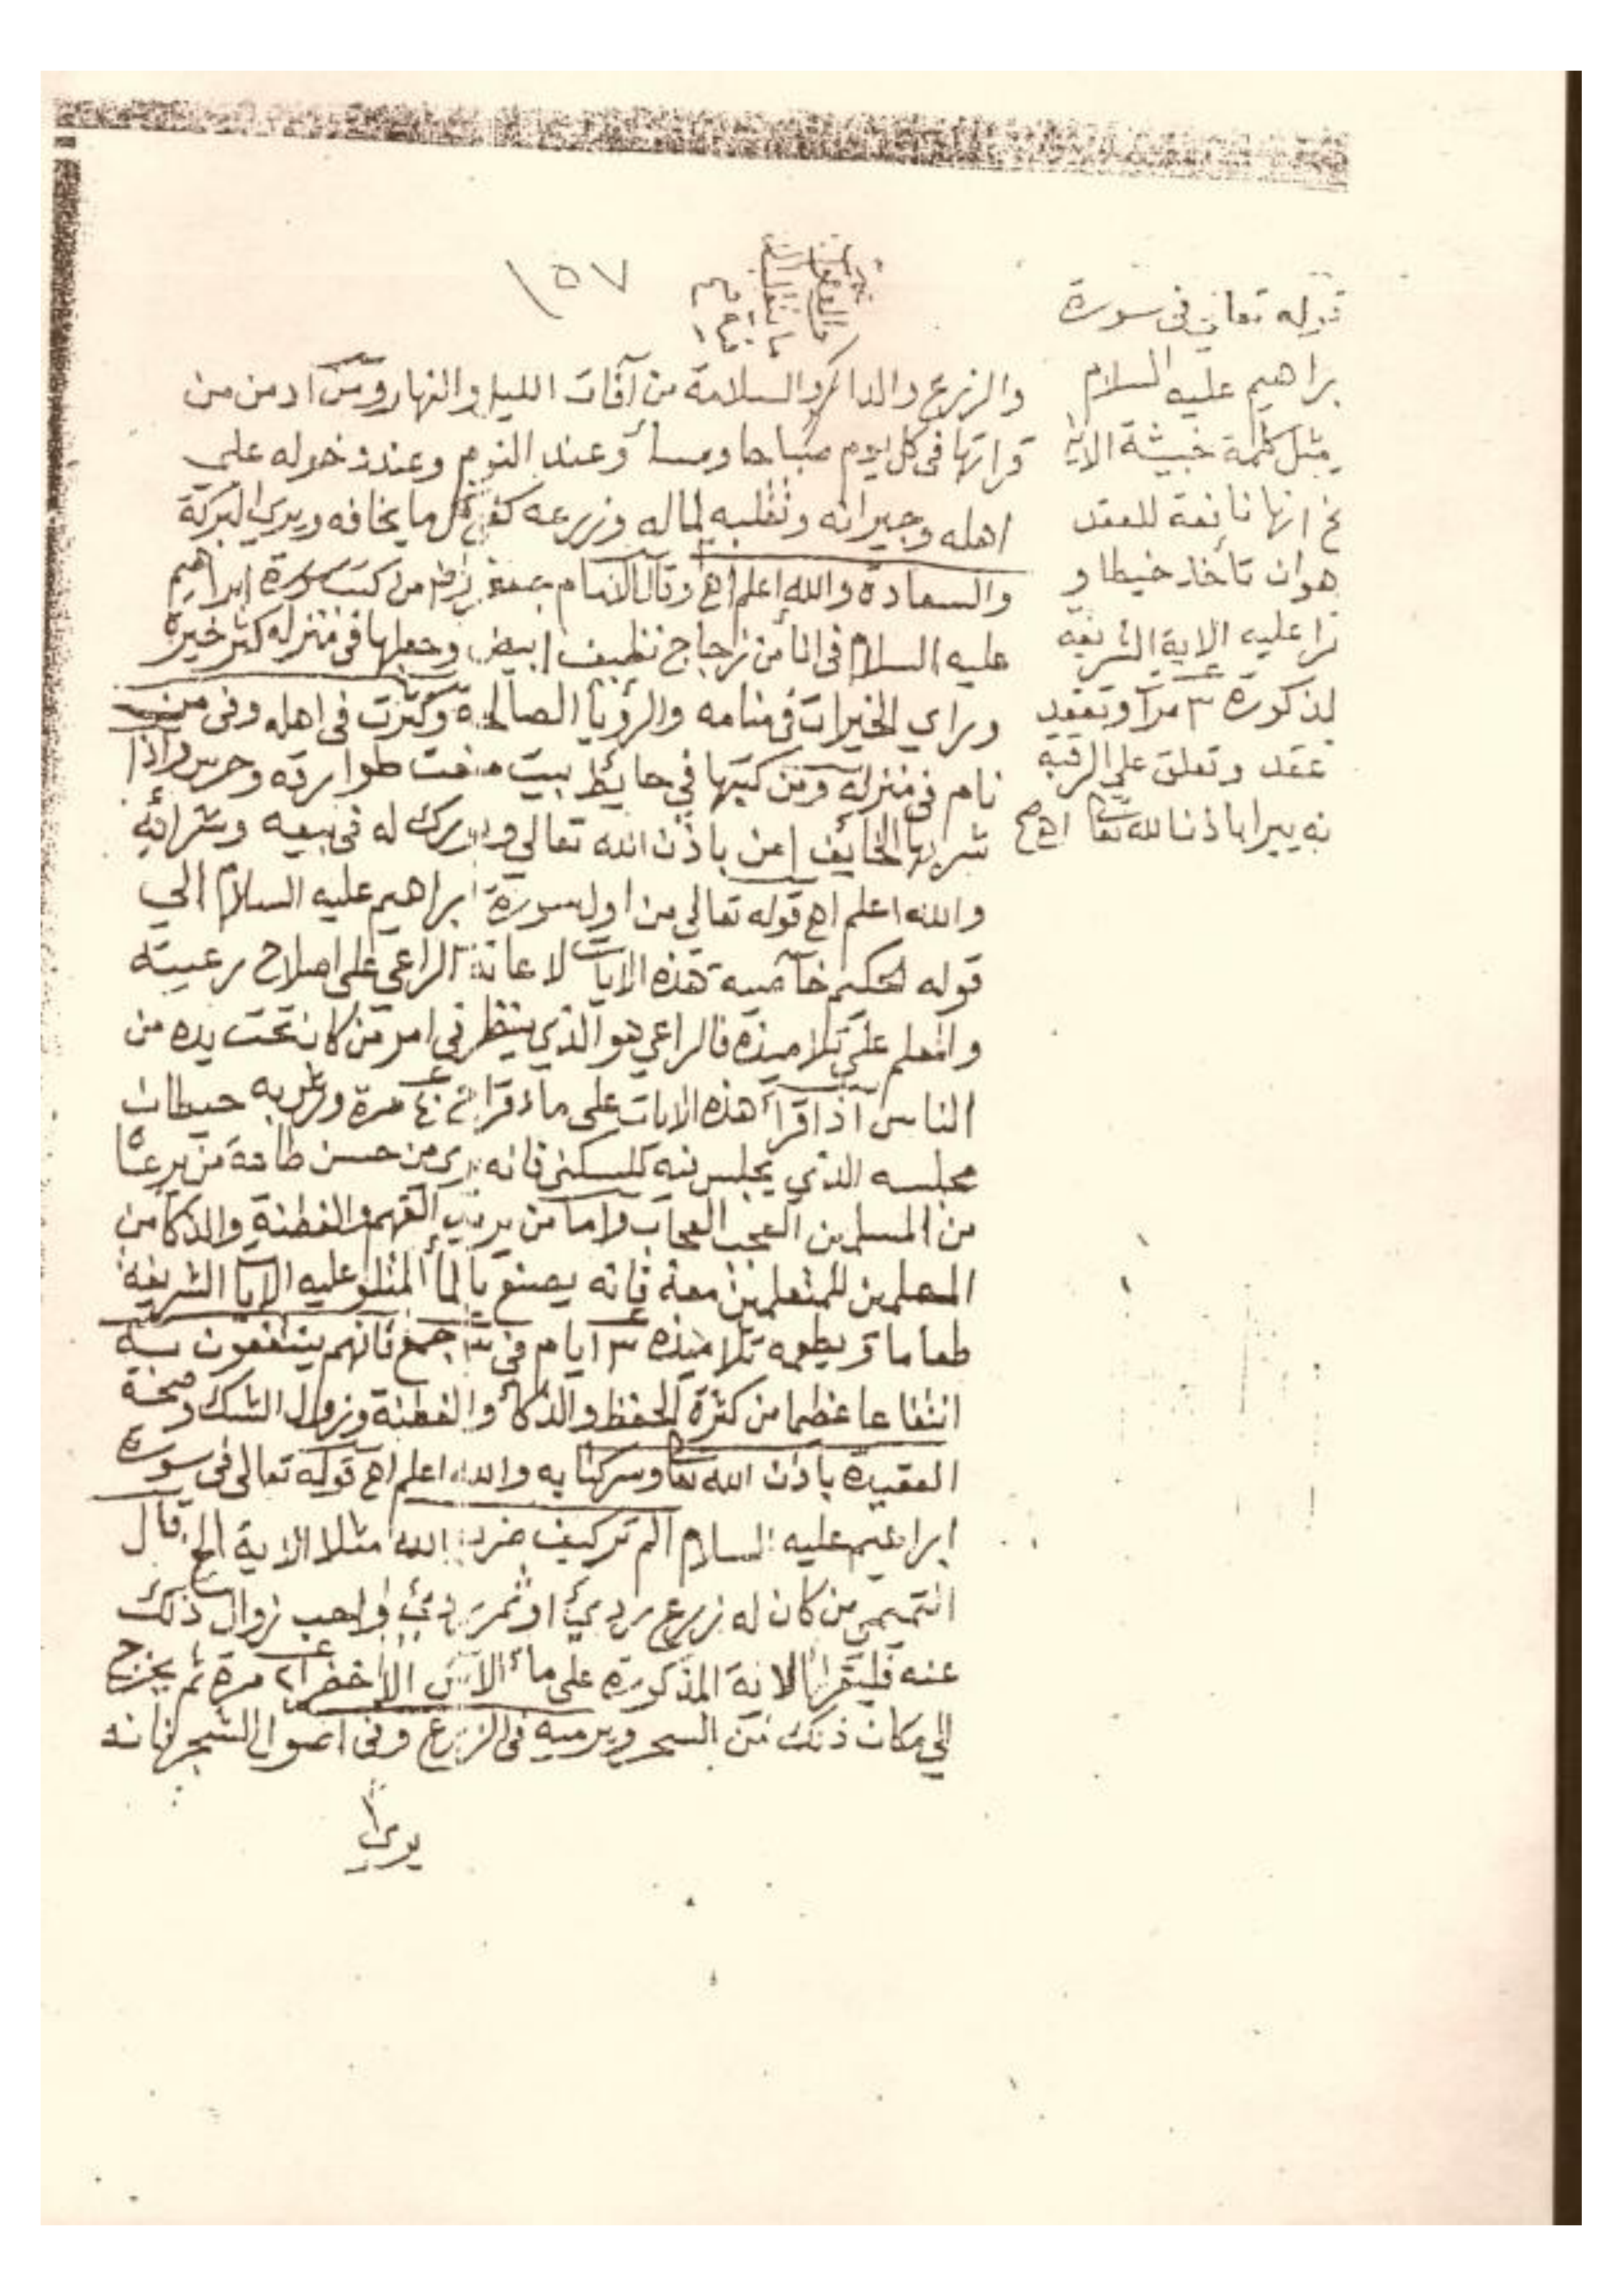 ١٥٧
والزرع والدا كر والسلامة من آفات الليل والنهار ومن ادمن من
قراتها في كل يوم صباحا ومسأ وعند النوم وعند دخوله علي
اهله وجيرانه وتقلبه لماله وزرعه كفي كل ما يخافه ويري البركة
والسعادة والله اعلم اهـ وقال الامام جعفر من كتب سورة ابراهيم
عليه السلام في انأ من زجاج نظيف ابيض وجعلها في منزله كثر خيره
وراي الخيرات في منامه والرؤيا الصالحة وكثرت في اهله وفي من
نام في منزله ومن كتبها في حايط بيت منعت طوارقه وحرس واذا
شربها الخايف امن باذن الله تعالي وبورك له في بيعه وشرائه
والله اعلم اهـ قوله تعالي من اول سورة ابراهيم عليه السلام الي
قوله الحكيم خاصية هذه الايات لاعانة الراعي علي اصلاح رعيته
والمعلم علي تلاميذه فالراعي هو الذي ينظر في امر من كان تحت يده من
الناس اذا قرأ هذه الايات علي ماء قراح ٤٠ مرة ورش به حيطان
مجلسه الذي يجلس فيه للسكني فانه يري من حسن طاعة من يرعاه
من المسلمين العجب العجاب واما من يريد الفهم والفطنة والذكأ من
المعلمين للمتعلمين معه فانه يصنع بالمأ المتلو عليه الايات الشريفة
طعاما ويطعمه تلاميذه ٣ ايام في ٣ جمع فانهم ينتفعون به
انتفاعا عظيما من كثرة الحفظ والذكأ والفطنة وزوال الشك وصحة
العقيدة باذن الله تعا وسر كتابه والله اعلم اهـ قوله تعالي في سورة
ابراهيم عليه السلام الم تر كيف ضرب الله مثلا الاية الخ قال
التميمي من كان له زرع ردئ او ثمر ردئ واحب زوال ذلك
عنه فليقرا الاية المذكورة علي مأ الآس الاخضر مرة ثم يخرج
الي مكان ذلك من السحر ويرميه في الزرع وفي اصول الشجر فانه
يري
قوله تعالي في سورة
براهيم عليه السلام
مثل كلمة خبيثة الاية
خ انها نافعة للعقد
هو ان تأخذ خيطا و
قرا عليه الاية الشريفة
لمذكورة ٣ مرآ وتعقد
عقد وتعلق علي الرقبه
نه يبرا باذن الله تعا اهـ صح